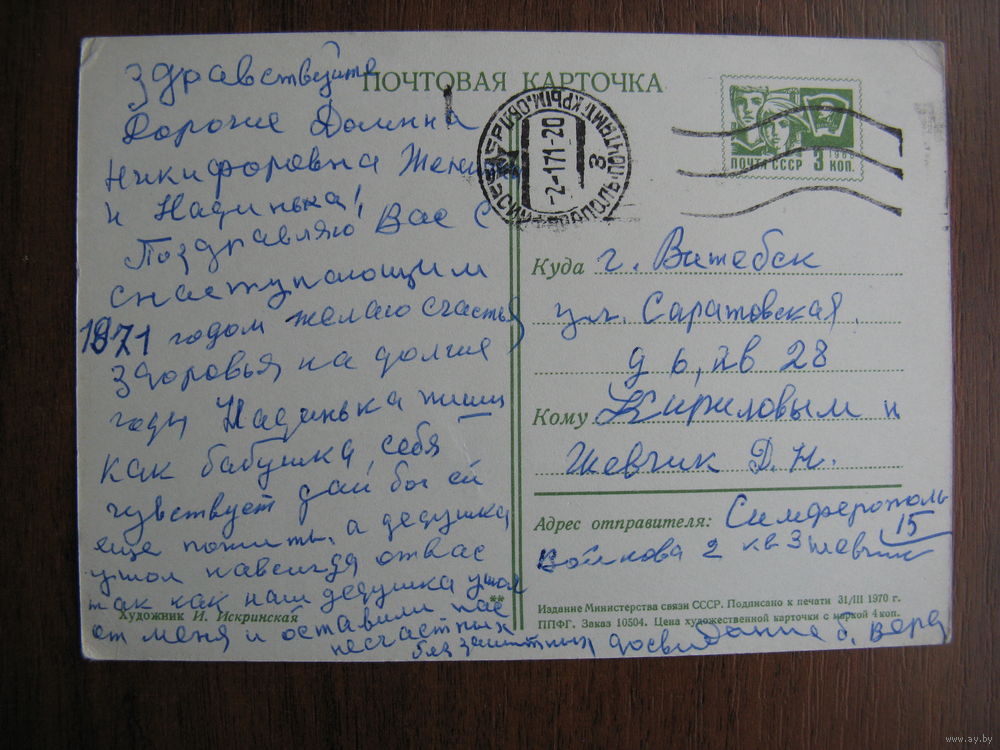 ПОЧТОВАЯ КАРТОЧКА
Здравствуйте
Дорогие Домнна
Никифоровна Жени
и Надинька!
Поздравляю Вас с
снаступающим
1971 годом желаю счастья
здоровья на долгие
годы Надинька пиши
как бабушка, себя
чувствует дай бог ей
еще пожить, а дедушка
ушол навсигда отвас
так как наш дедушка ушол
от меня и оставили нас
несчастных
без защитных досвидания б. Вера
Художник И. Искринская
**
ПОЧТА СССР 3 КОП.
1966
СИМФЕРОПОЛЬ
КРЫМ. ОБЛ.
2-1 71-20
Куда г. Витебск
ул. Саратовская,
д 6, кв 28
Кому Кириловым и
Шевчик Д. Н.
Адрес отправителя: Симферополь
15
Войкова 2 кв 3 Шевчик
Издание Министерства связи СССР. Подписано к печати 31/III 1970 г.
ППФГ. Заказ 10504. Цена художественной карточки с маркой 4 коп.
www.ay.by